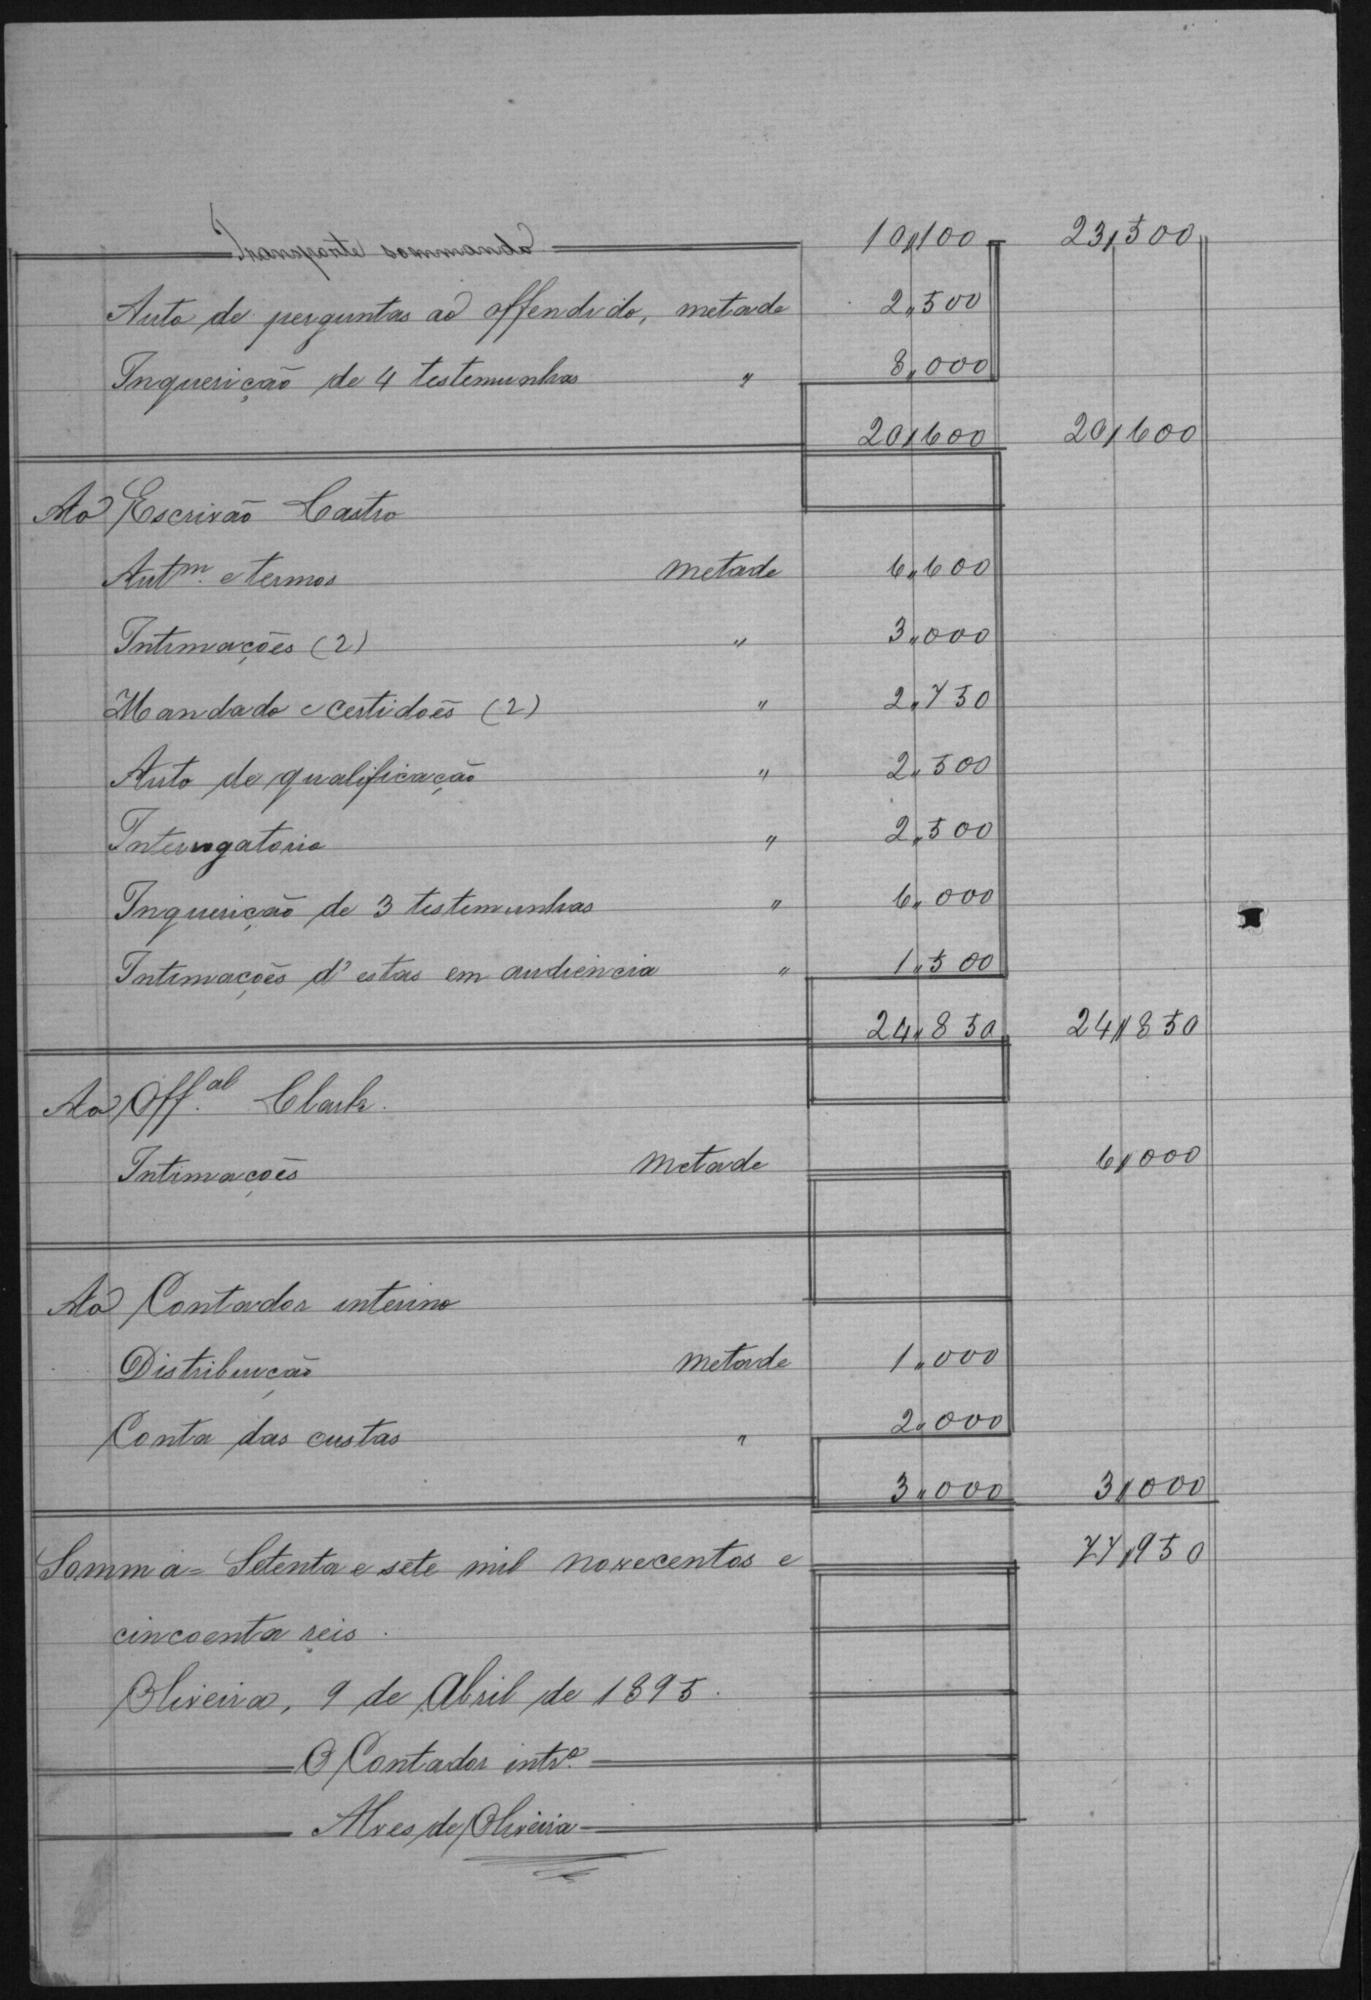 Transporte e sommando 10,100 23,500
Auto de perguntas ao offendido, metade 2,,500
Inquerição de 4 testemunhas " 8,,000
20,600 20,600
Ao Escrivão Castro
Autm. e termos metade 6,,600
Intimações (2) " 3,,000
Mandado e certidoẽs (2) " 2,,750
Auto de qualificação " 2,,500
Interrogatorio " 2,,500
Inquerição de 3 testemunhas " 6,,000
Intimações d'estas em audiencia " 1,,500
24,,850 24,,850
Ao Off.al Clark.
Intimações metade 6,,000
Ao Contador interino
Distribuição metade 1,,000
Conta das custas " 2,,000
3,,000 3,,000
Somma = Setenta e sete mil novecentos e 77,,950
cincoenta reis.
Oliveira, 9 de Abril de 1895.
O Contador intrº.
Alves de Oliveira